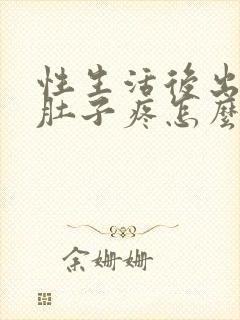 性生活後出
肚子疼怎麼
余姍姍